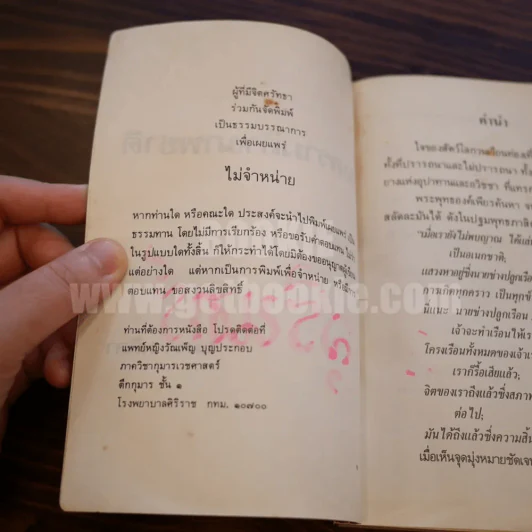 ผู้ที่มีจิตศรัทธา
ร่วมกันจัดพิมพ์
เป็นธรรมบรรณาการ
เพื่อเผยแพร่
ไม่จำหน่าย
หากท่านใด หรือคณะใด ประสงค์จะนำไปพิมพ์เผยแพร่ เป็น
ธรรมทาน โดยไม่มีการเรียกร้อง หรือขอรับค่าตอบแทน ไม่ว่า
ในรูปแบบใดทั้งสิ้น ก็ให้กระทำได้โดยมิต้องขออนุญาต
แต่อย่างใด แต่หากเป็นการพิมพ์เพื่อจำหน่าย หรือมี
ตอบแทน ขอสงวนลิขสิทธิ์
ท่านที่ต้องการหนังสือ โปรดติดต่อที่
แพทย์หญิงวัณเพ็ญ บุญประกอบ
ภาควิชากุมารเวชศาสตร์
ตึกกุมาร ชั้น ๑
โรงพยาบาลศิริราช กทม. ๑๐๗๐๐
คำนำ
ใจของสัตว์โลก
ทั้งที่ปรารถนาและไม่ปรารถนา ทั้ง
ยางแห่งอุปาทานและอวิชชา ที่แทรก
พระพุทธองค์เพียรค้นหา
สลัดละมันได้ ดังในปฐมพุทธภาสิต
"เมื่อเรายังไม่พบญาณ ได้แล่น
เป็นอเนกชาติ;
แสวงหาอยู่ซึ่งนายช่างปลูกเรือน
การเกิดทุกคราว เป็นทุกข์
นี่แน่ะ นายช่างปลูกเรือน
เจ้าจะทำเรือนให้เรา
โครงเรือนทั้งหมดของเจ้าเรา
เราก็รื้อเสียแล้ว;
จิตของเราถึงแล้วซึ่งสภาพ
ต่อไป;
มันได้ถึงแล้วซึ่งความสิ้น
เมื่อเห็นจุดมุ่งหมายชัดเจน